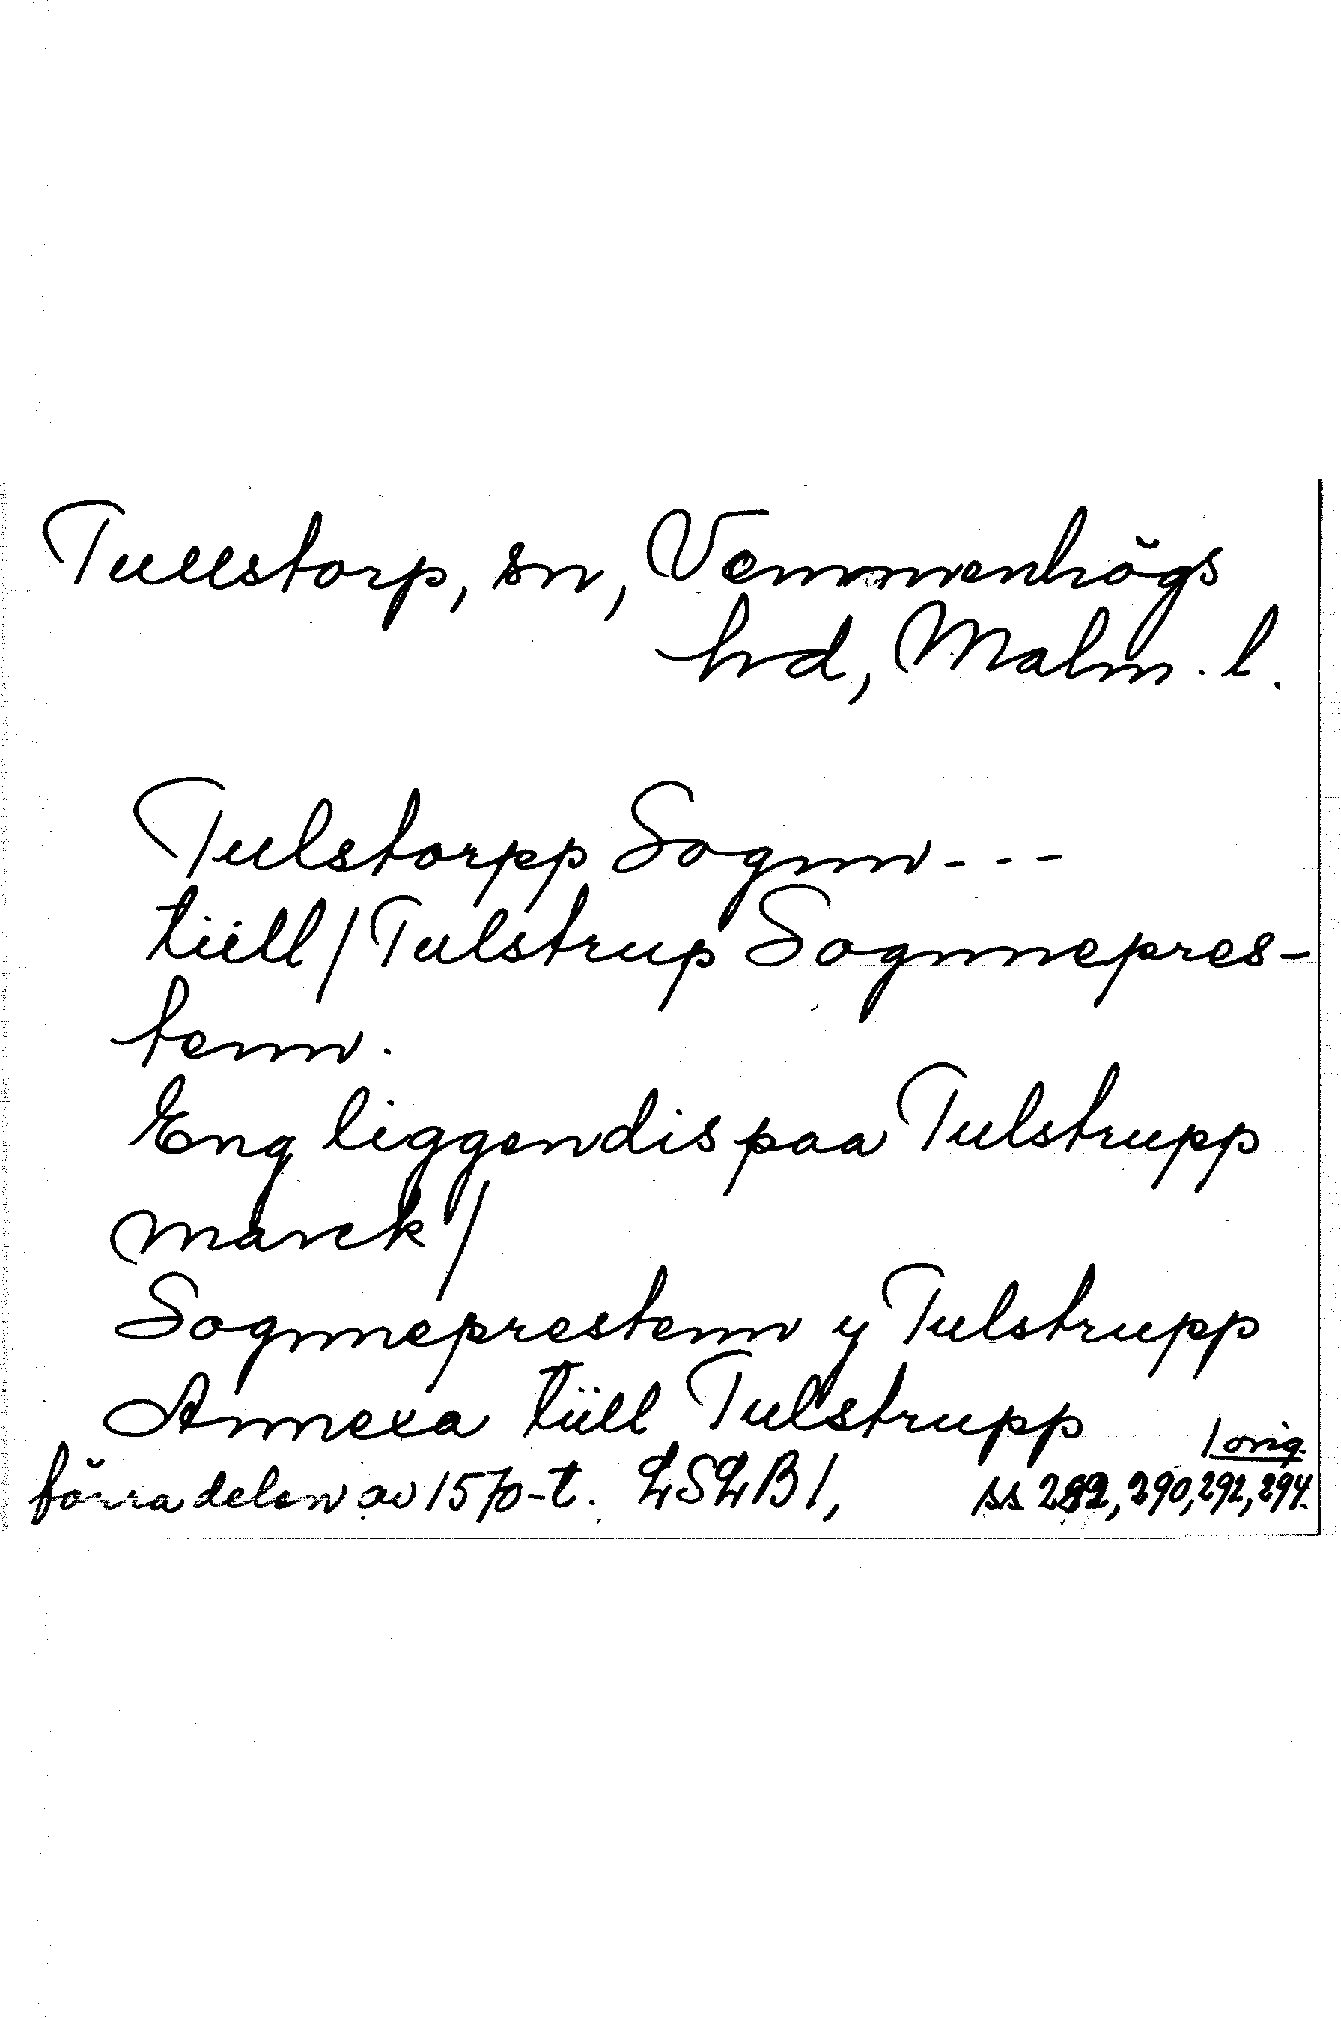 Tullstorp, sn, Vemmenhögs
hd, Malm. l.
Tulstorpp Sognn - - -
tiill / Tulstrup Sognnepres-
tenn.
Eng liggendis paa Tulstrupp
marck /
Sognneprestenn y Tulstrupp
Annexa tiill Tulstrupp
/ orig.
förra delen av 1570-t. LSLB 1, ss 282, 290, 292, 294.